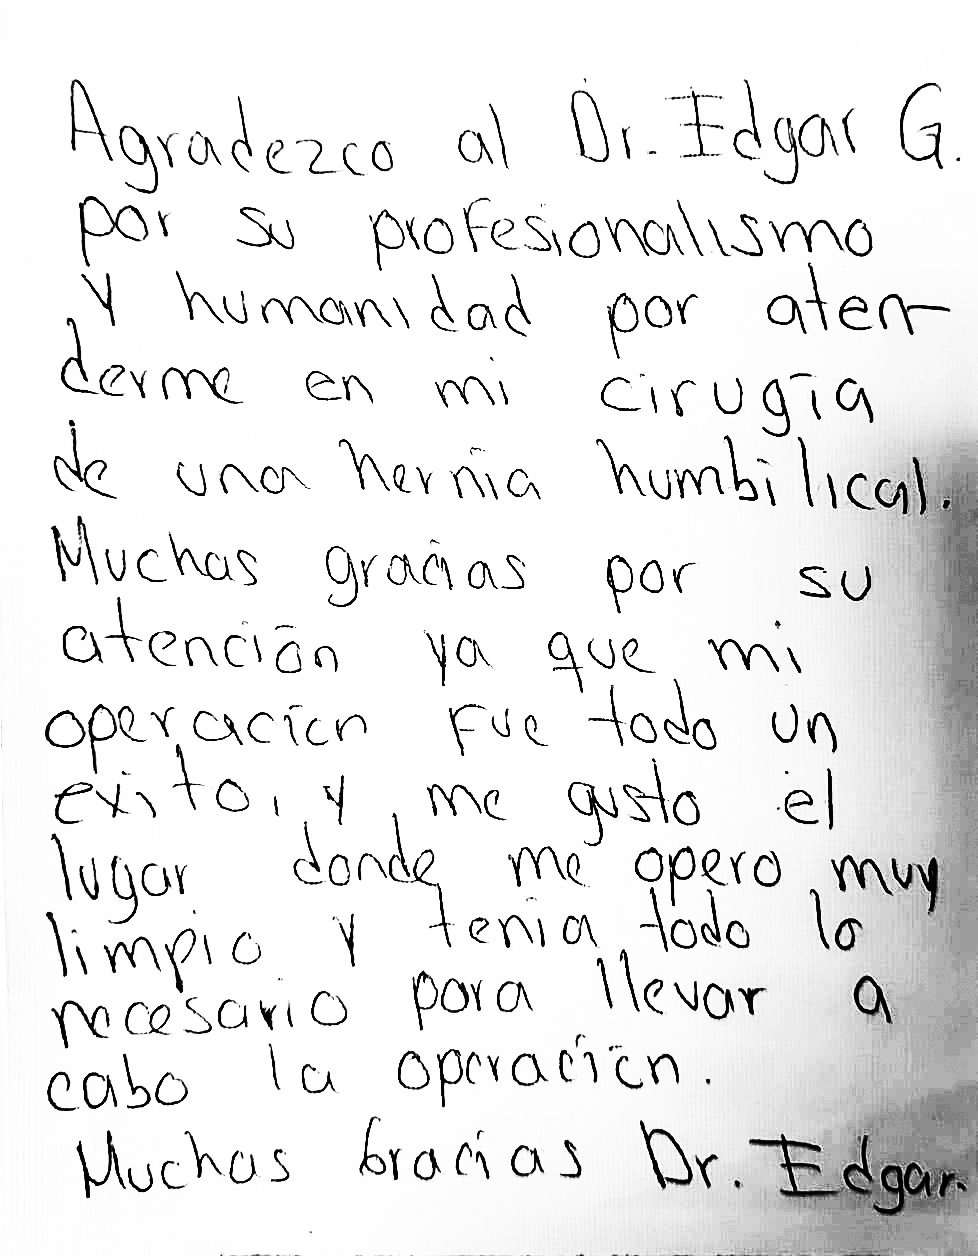 Agradezco al Dr. Edgar G.
por su profesionalismo
y humanidad por aten-
derme en mi cirugía
de una hernia humbilical.
Muchas gracias por su
atención ya que mi
operación fue todo un
exito, y me gusto el
lugar donde me opero muy
limpio y tenia todo lo
necesario para llevar a
cabo la operación.
Muchas Gracias Dr. Edgar.